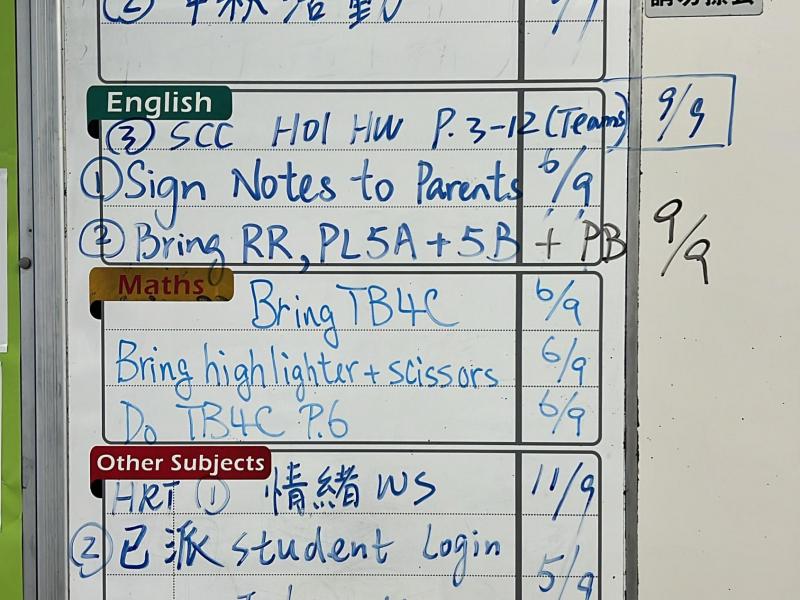 English
③ SCC H01 HW P.3-12 (Teams) 9/9
① Sign Notes to Parents 6/9
② Bring RR, PL5A + 5B + PB 9/9
Maths
Bring TB4C 6/9
Bring highlighter + scissors 6/9
Do TB4C P.6 6/9
Other Subjects
HRT ① 情緒 WS 11/9
② 已派 student Login 5/9